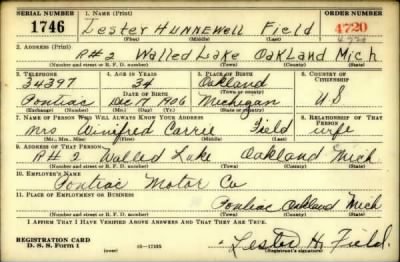 SERIAL NUMBER 1. NAME (Print) ORDER NUMBER
1746 Lester HUNNEWELL Field 4720
(First) (Middle) (Last)
2. ADDRESS (Print)
R#2 Walled Lake OAKLAND Mich
(Number and street or R. F. D. number) (Town) (County) (State)
3. TELEPHONE 4. AGE IN YEARS 5. PLACE OF BIRTH 6. COUNTRY OF CITIZENSHIP
34397 34 Oakland
DATE OF BIRTH (Town or county)
Pontiac Dec 17, 1906 Michigan U S
(Exchange) (Mo.) (Day) (Yr.) (State or country)
7. NAME OF PERSON WHO WILL ALWAYS KNOW YOUR ADDRESS 8. RELATIONSHIP OF THAT PERSON
Mrs Winifred Carrie Field wife
(Mr., Mrs., Miss) (First) (Middle) (Last)
9. ADDRESS OF THAT PERSON
R# 2 Walled Lake Oakland Mich
(Number and street or R. F. D. number) (Town) (County) (State)
10. EMPLOYER'S NAME
Pontiac Motor Co
11. PLACE OF EMPLOYMENT OR BUSINESS
Pontiac Oakland Mich
(Number and street or R. F. D. number) (Town) (County) (State)
I AFFIRM THAT I HAVE VERIFIED ABOVE ANSWERS AND THAT THEY ARE TRUE.
REGISTRATION CARD
D. S. S. Form 1 Lester H. Field.
(Registrant's signature)